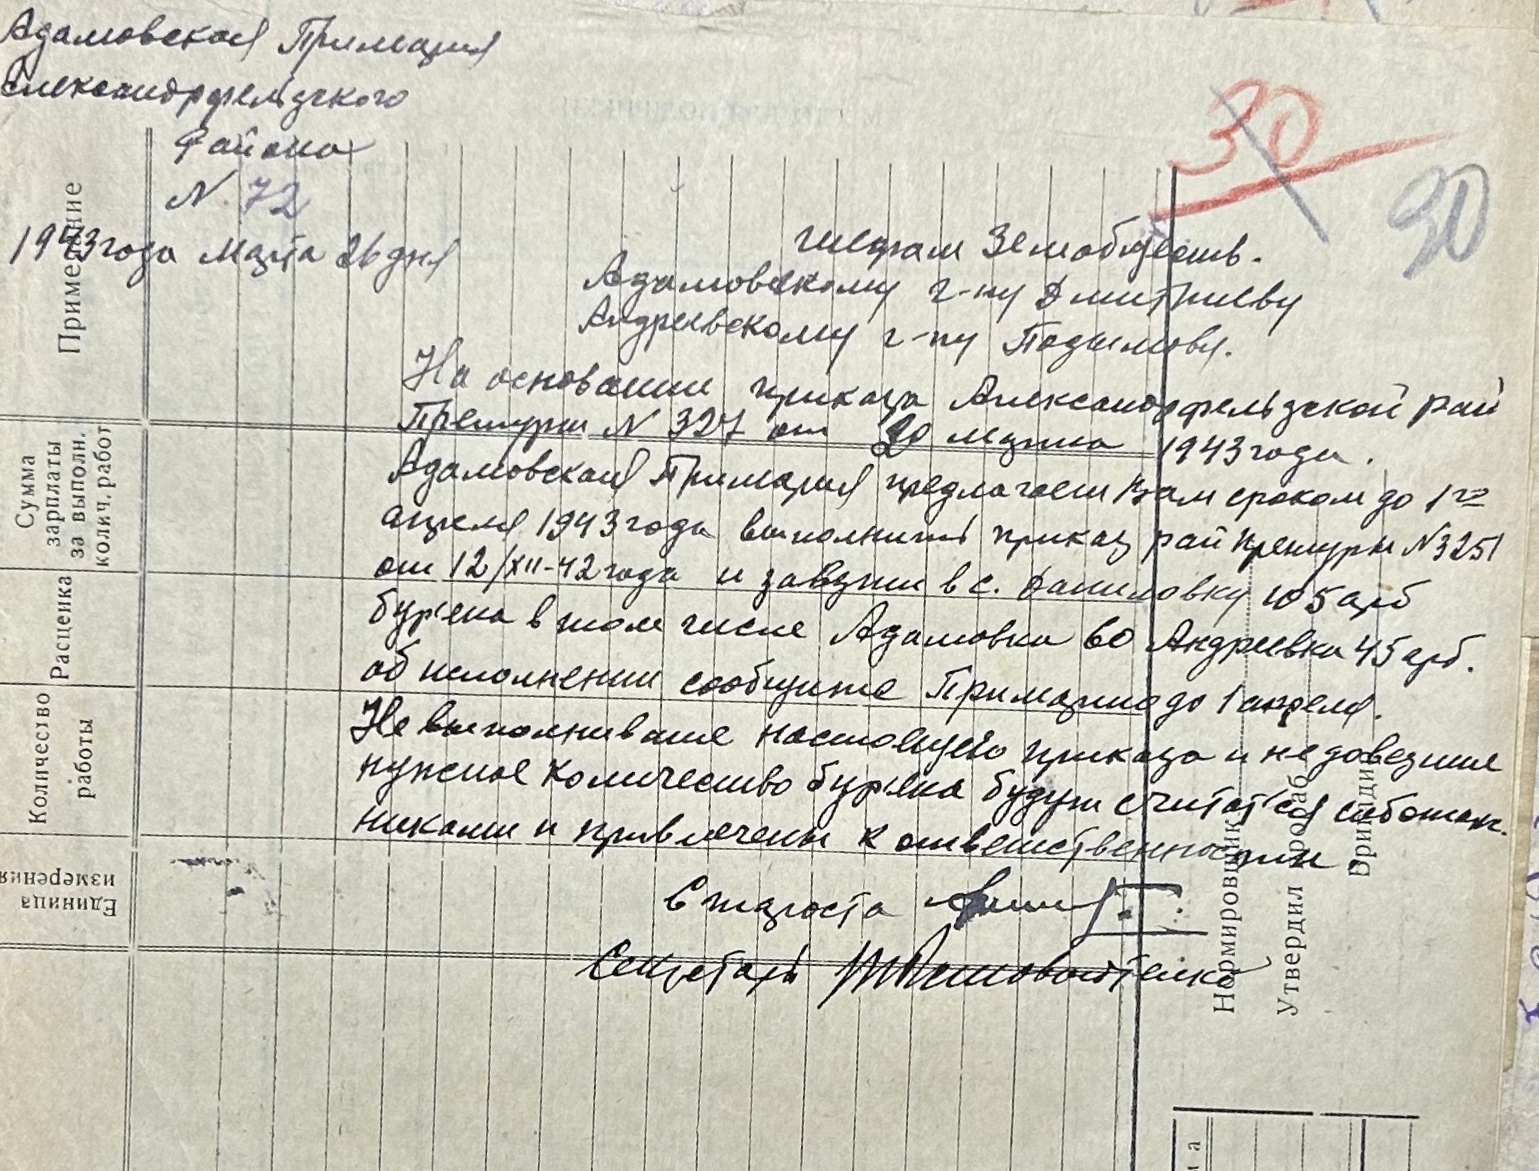 Адамовская Примария
Александрфельзского
района
N 72
1943 года Марта 26 дня
30
30
Адамовскому г-ну Дмитриеву
Андреевскому г-ну Подымову.
На основании приказа Александрфельзской рай
Претуры N 327 от 20 марта 1943 года.
Адамовская Примария предлагает Вам сроком до 1го
апреля 1943 года выполнить приказ рай претуры N 3251
от 12/XII-42 года и завезти в с. Даниловку 105 арб
буряка в том числе Адамовка 60 Андреевка 45 арб.
об исполнении сообщите Примарию до 1 апреля.
Не выполнившие настоящего приказа и не довезшие
нужное количество буряка будут считаться саботаж-
никами и привлечены к ответственности.
Староста
Секретарь
Примечание
Сумма
зарплаты
за выполн.
колич. работ
Расценка
Количество
работы
Единица
измерения
Нормировщик
Утвердил прораб